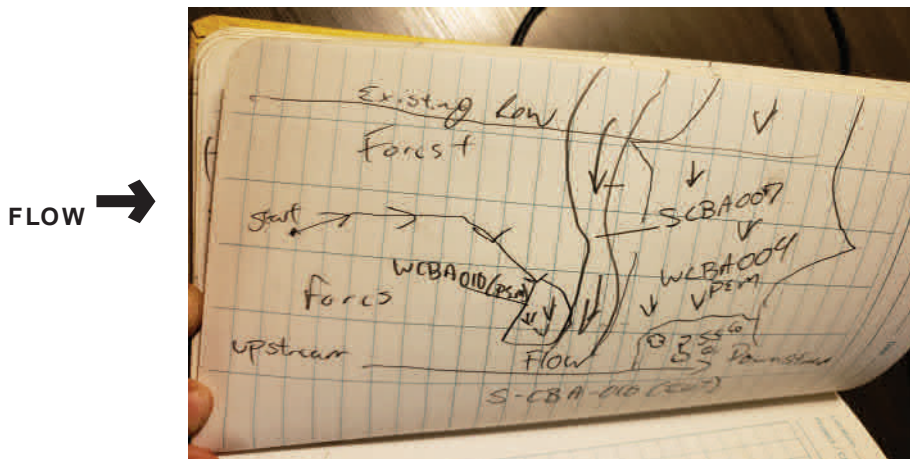 FLOW
Existing Row
Forest
start
SCBA007
WCBA004
PEM
WCBA010 (PSM)
Forcs
Flow
upstream
Downstream
S-CBA-010